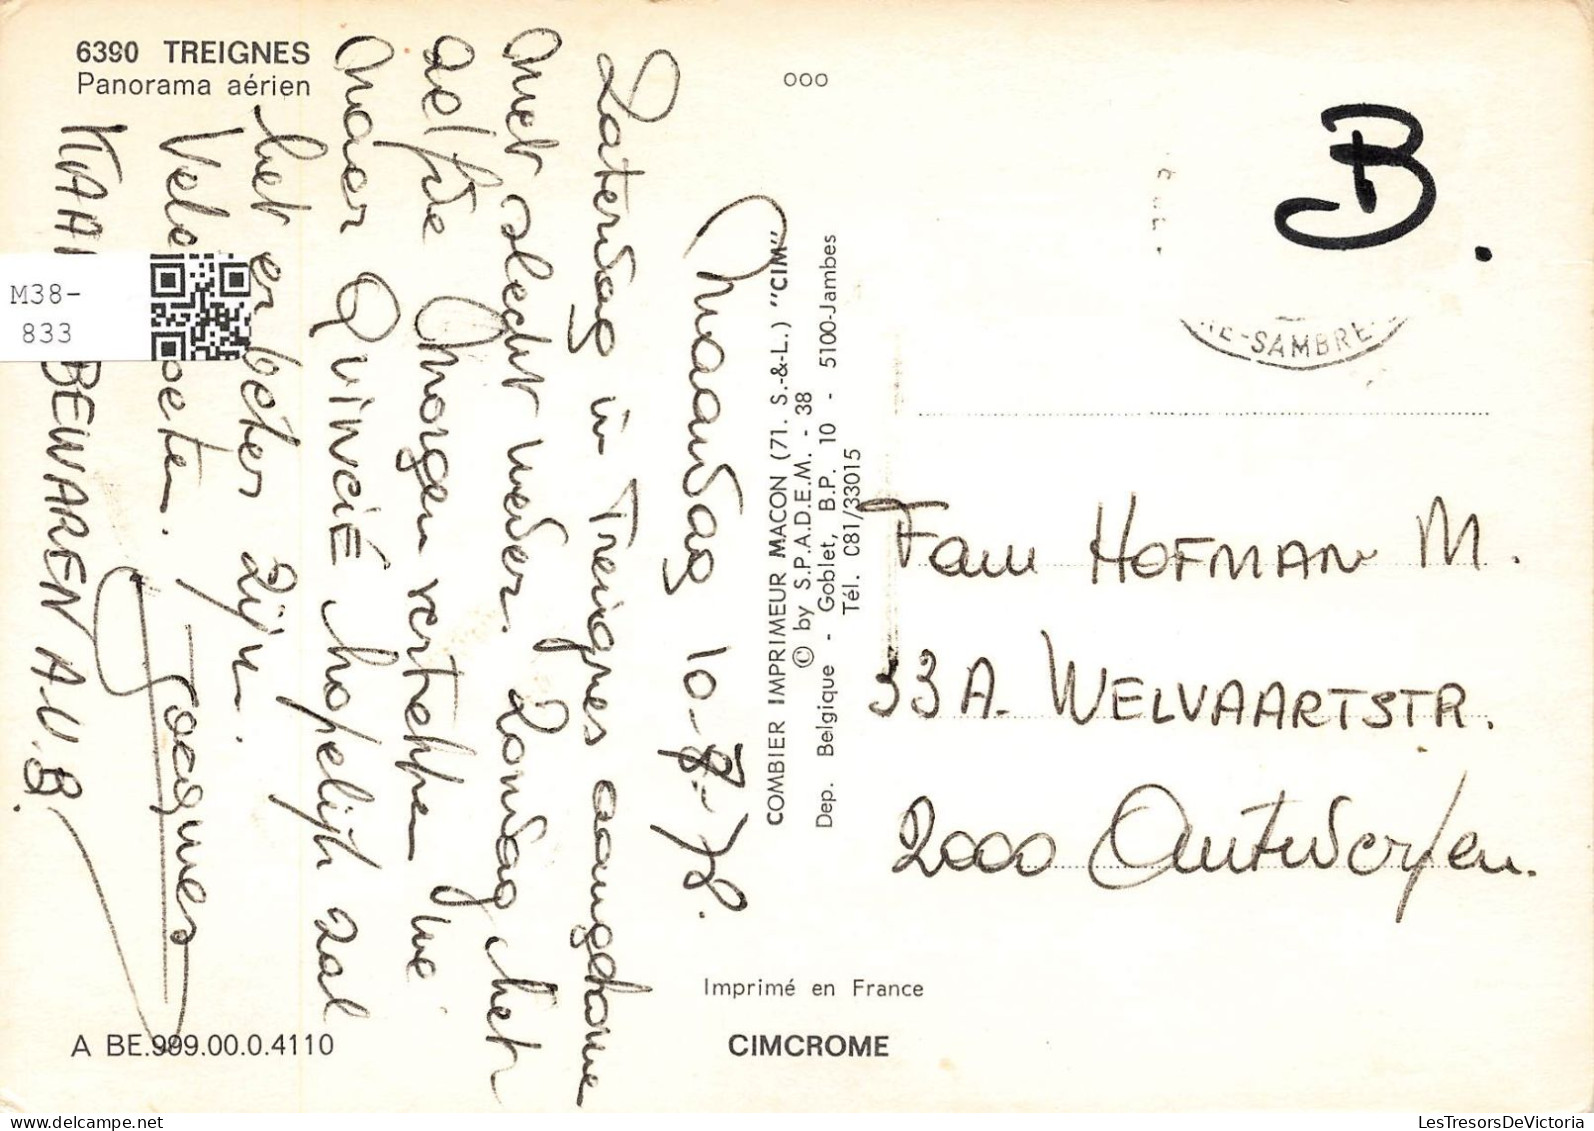 6390 TREIGNES
Panorama aérien
Maandag 10-7-78.
Zaterdag in Treignes aangekome
met slecht weder. Zondag het
zelfde Morgen vertrekken we
naar QUINCIÉ hopelijk zal
het er beter zijn.
KAA BEWAREN A.U.B.
Jacques
M38-
833
A BE.999.00.0.4110
000
COMBIER IMPRIMEUR MACON (71. S.-&-L.) "CIM"
© by S.P.A.D.E.M. - 38
Dep. Belgique - Goblet, B.P. 10 - 5100-Jambes
Tél. 081/33015
Imprimé en France
CIMCROME
B.
E-SAMBRE
Fam HOFMAN M.
33A. WELVAARTSTR.
2000 Antwerpen.
LesTresorsDeVictoria